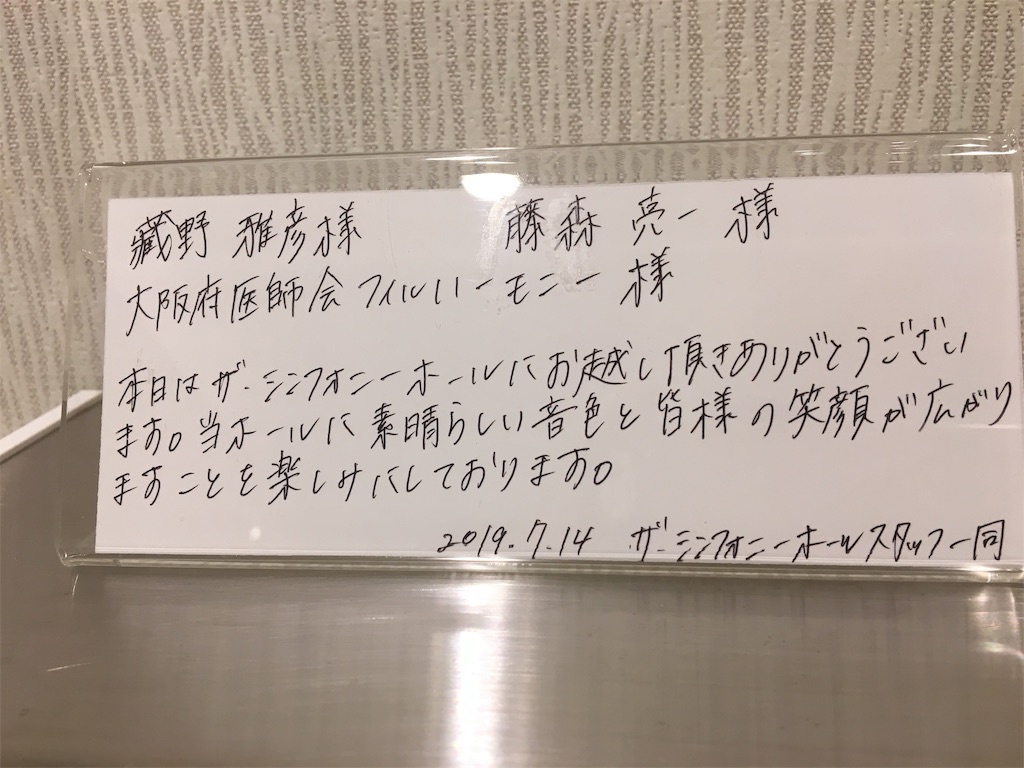 藏野 雅彦様 藤森 亮一 様
大阪府医師会フィルハーモニー 様
本日はザ・シンフォニーホールにお越し頂きありがとうござい
ます。当ホールに素晴らしい音色と皆様の笑顔が広がり
ますことを楽しみにしております。
2019.7.14 ザ・シンフォニーホールスタッフ一同